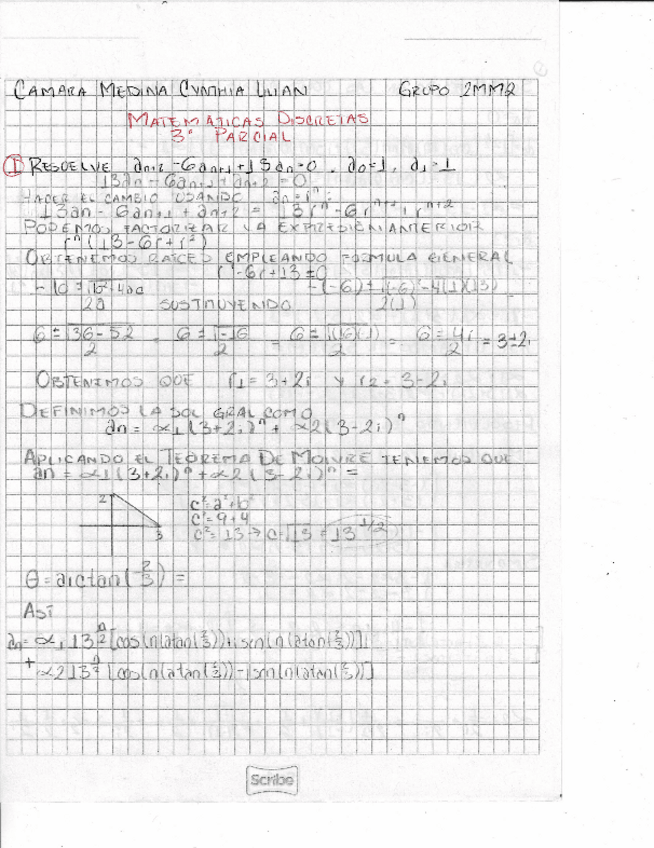 CAMARA MEDINA CYNTHIA LILIAN GRUPO 2MM2
MATEMATICAS DISCRETAS
3° PARCIAL
1 RESUELVE an+2 -6an+1 +13an=0 , a0=1, a1=1
13an -6an+1 + an+2 =0
HACER EL CAMBIO USANDO an=r^n
13an - 6an+1 + an+2 = 13r^n -6r^n+1 + r^n+2
PODEMOS FACTORIZAR LA EXPRESION ANTERIOR
r^n (13-6r+r²)
OBTENEMOS RAICES EMPLEANDO FORMULA GENERAL
r²-6r+13=0
-b ±√b²-4ac -(-6)±√(-6)²-4(1)(13)
2a SUSTITUYENDO 2(1)
6±√36-52 = 6±√-16 = 6±√(16)(1) = 6±4i = 3±2i
2 2 2 2
OBTENIMOS QUE r1=3+2i Y r2=3-2i
DEFINIMOS LA SOL GRAL COMO
an = ∝1(3+2i)^n + ∝2(3-2i)^n
APLICANDO EL TEOREMA DE MOIVRE TENEMOS QUE
an = ∝1(3+2i)^n + ∝2(3-2i)^n =
2
c²=a²+b²
c²=9+4
c²=13→c=√13=13^1/2
3
θ=arctan(2/3) =
ASI
an= ∝1 13^n/2 [cos(n(atan(2/3))+isen(n(atan(2/3))]
+ ∝2 13^n/2 [cos(n(atan(2/3))-isen(n(atan(2/3))]
Scribe